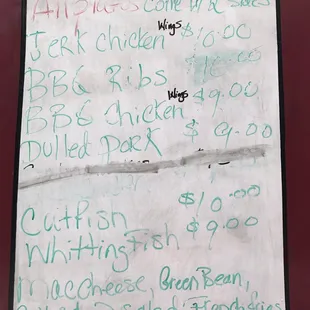 All plates come W/ 2 sides
Jerk chicken Wings $10.00
BBQ Ribs $10.00
BBQ Chicken Wings $9.00
Pulled Pork $9.00
Catfish $10.00
Whitting Fish $9.00
Mac Cheese, Green Bean,